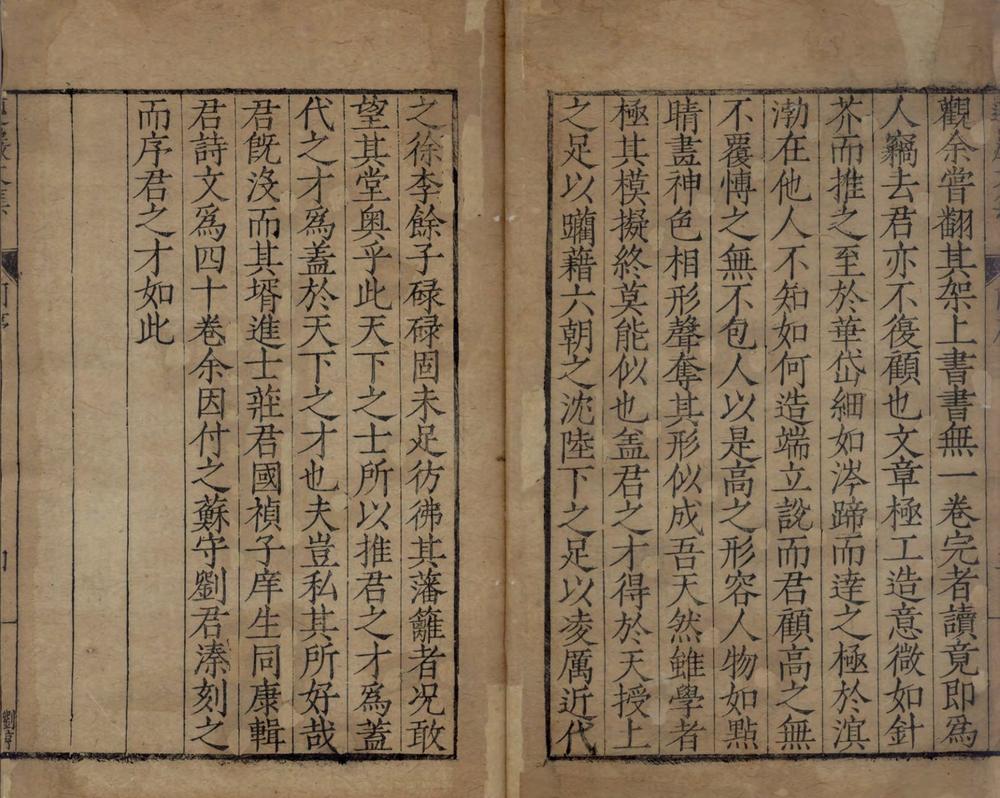 觀余嘗翻其架上書書無一卷完者讀竟即爲
人竊去君亦不復顧也文章極工造意微如針
芥而推之至於華岱細如涔蹄而達之極於溟
渤在他人不知如何造端立說而君顧高之無
不覆慱之無不包人以是高之形容人物如點
睛畫神色相形聲奪其形似成吾天然雖學者
極其模擬終莫能似也盖君之才得於天授上
之足以躪藉六朝之沈陸下之足以凌厲近代
之徐李餘子碌碌固未足彷彿其藩籬者况敢
望其堂奥乎此天下之士所以推君之才爲蓋
代之才爲盖於天下之才也夫豈私其所好哉
君旣沒而其壻進士莊君國禎子庠生同康輯
君詩文爲四十卷余因付之蘇守劉君溱刻之
而序君之才如此